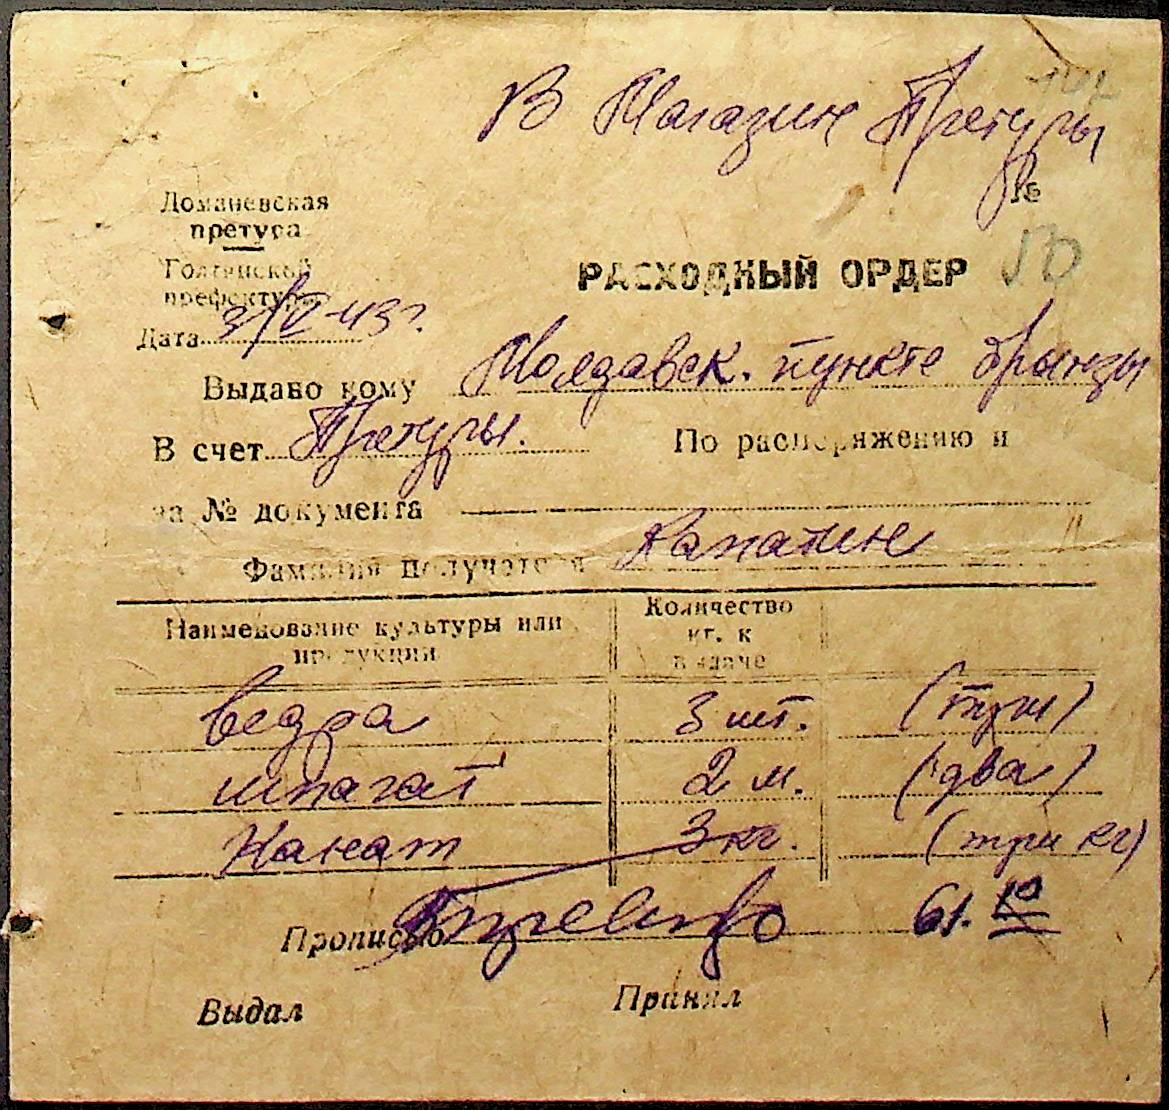 В Магазин Претуры
№
Доманевская
претура
Голтянской
префектуры
РАСХОДНЫЙ ОРДЕР
Дата 3/VI-43 г.
Выдано кому Молдавск. пункте брынзы
В счет Претуры. По распоряжению и
за № документа
Фамилия получателя Капатин
Наименование культуры или
продукции
Количество
кг. к
выдаче
ведра 3 шт. (три)
шпагат 2 м. (два)
Канат 3 кг. (три кг)
Прописью 61.10
Выдал Принял